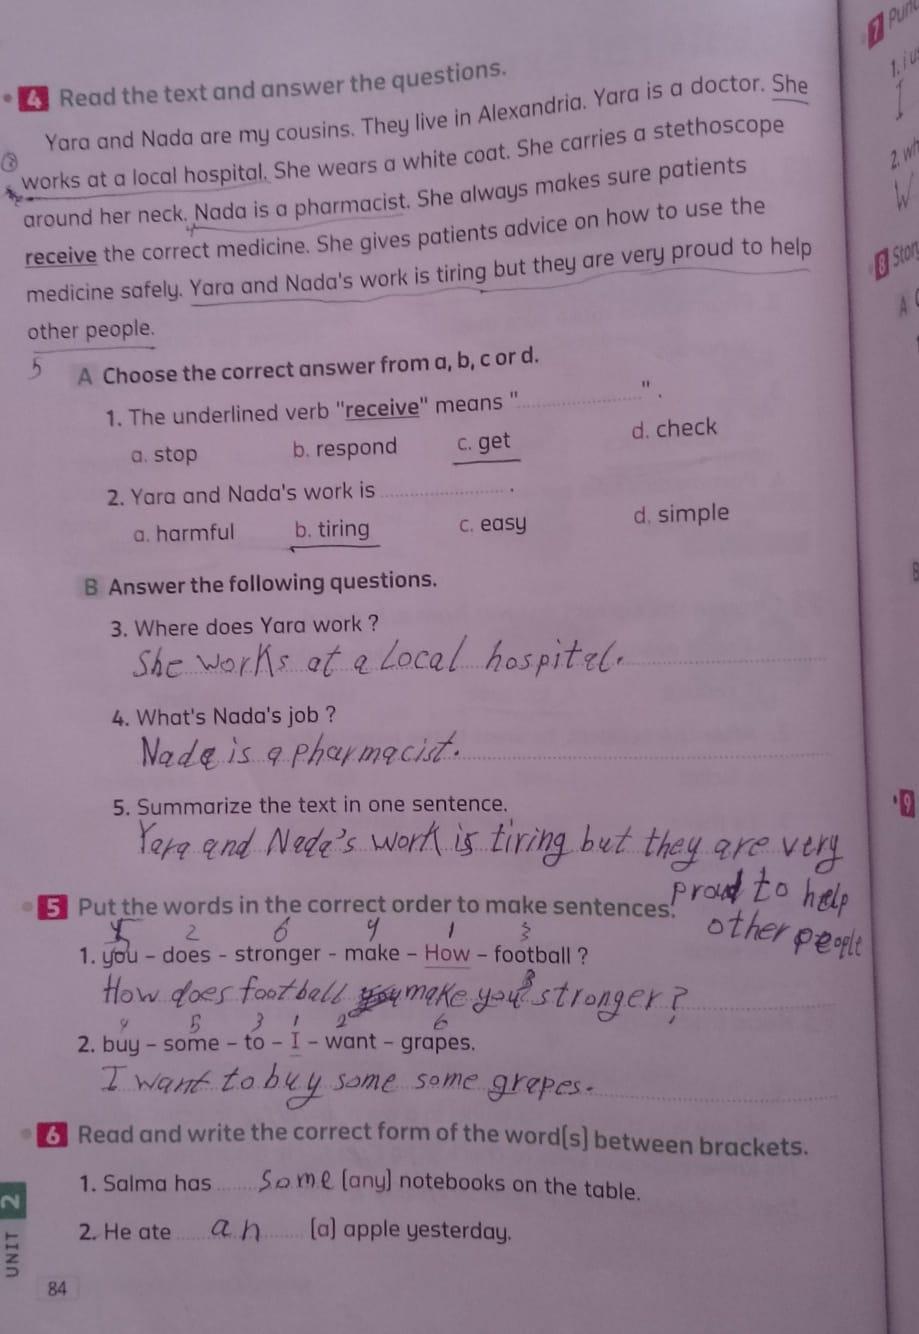 4 Read the text and answer the questions.
Yara and Nada are my cousins. They live in Alexandria. Yara is a doctor. She
works at a local hospital. She wears a white coat. She carries a stethoscope
around her neck. Nada is a pharmacist. She always makes sure patients
receive the correct medicine. She gives patients advice on how to use the
medicine safely. Yara and Nada's work is tiring but they are very proud to help
other people.
5
A Choose the correct answer from a, b, c or d.
1. The underlined verb "receive" means "____".
a. stop b. respond c. get d. check
2. Yara and Nada's work is ____.
a. harmful b. tiring c. easy d. simple
B Answer the following questions.
3. Where does Yara work ?
She works at a local hospital.
4. What's Nada's job ?
Nada is a pharmacist.
5. Summarize the text in one sentence.
Yara and Nada's work is tiring but they are very
proud to help
other people
5 Put the words in the correct order to make sentences.
2 6 4 1 3
1. you - does - stronger - make - How - football ?
How does football make you stronger?
4 5 3 1 2 6
2. buy - some - to - I - want - grapes.
I want to buy some some grapes.
6 Read and write the correct form of the word(s) between brackets.
1. Salma has some (any) notebooks on the table.
2. He ate an (a) apple yesterday.
UNIT 2
84
7
1. i
I
2. wh
W
8 Stor
A
9